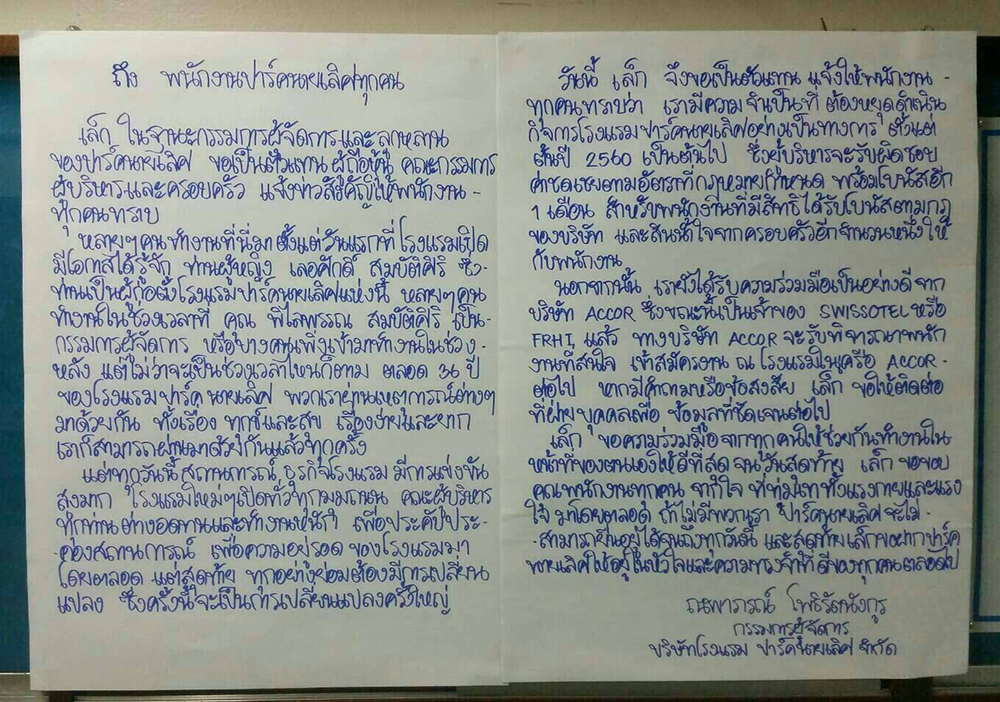 ถึง พนักงานปาร์คนายเลิศทุกคน
เล็ก ในฐานะกรรมการผู้จัดการและลูกหลาน
ของปาร์คนายเลิศ ขอเป็นตัวแทน ผู้ถือหุ้น คณะกรรมการ
ผู้บริหารและครอบครัว แจ้งข่าวสำคัญให้พนักงาน-
ทุกคนทราบ
หลายๆคนทำงานที่นี่มาตั้งแต่วันแรกที่โรงแรมเปิด
มีโอกาสได้รู้จัก ท่านผู้หญิง เลอศักดิ์ สมบัติศิริ ซึ่ง-
ท่านเป็นผู้ก่อตั้งโรงแรมปาร์คนายเลิศแห่งนี้ หลายๆคน
ทำงานในช่วงเวลาที่ คุณ พิไลพรรณ สมบัติศิริ เป็น-
กรรมการผู้จัดการ หรือบางคนเพิ่งเข้ามาทำงานในช่วง-
หลัง แต่ไม่ว่าจะเป็นช่วงเวลาไหนก็ตาม ตลอด 36 ปี
ของโรงแรมปาร์คนายเลิศ พวกเราผ่านเหตุการณ์ต่างๆ
มาด้วยกัน ทั้งเรื่อง ทุกข์และสุข เรื่องง่ายและยาก
เราก็สามารถผ่านมาด้วยกันแล้วทุกครั้ง
แต่ทุกวันนี้ สถานการณ์ ธุรกิจโรงแรม มีการแข่งขัน
สูงมาก โรงแรมใหม่ๆเปิดทั่วทุกมุมถนน คณะผู้บริหาร
ทุกท่าน ต่างอดทนและทำงานหนัก เพื่อประคับประ-
คองสถานการณ์ เพื่อความอยู่รอด ของโรงแรมมา
โดยตลอด แต่สุดท้าย ทุกอย่างย่อมต้องมีการเปลี่ยน
แปลง ซึ่งครั้งนี้จะเป็นการเปลี่ยนแปลงครั้งใหญ่
วันนี้ เล็ก จึงขอเป็นตัวแทน แจ้งให้พนักงาน-
ทุกคนทราบว่า เรามีความจำเป็นที่ ต้องหยุดดำเนิน
กิจการโรงแรมปาร์คนายเลิศอย่างเป็นทางการ ตั้งแต่
ต้นปี 2560 เป็นต้นไป ซึ่งผู้บริหารจะรับผิดชอบ
ค่าชดเชยตามอัตราที่กฎหมายกำหนด พร้อมโบนัสอีก
1 เดือน สำหรับพนักงานที่มีสิทธิ์ได้รับโบนัสตามกฎ
ของบริษัท และสินน้ำใจจากครอบครัวอีกจำนวนหนึ่งให้
กับพนักงาน
นอกจากนั้น เรายังได้รับความร่วมมือเป็นอย่างดี จาก
บริษัท ACCOR ซึ่งขณะนี้เป็นเจ้าของ SWISSOTEL หรือ
FRHI แล้ว ทางบริษัท ACCOR จะรับพิจารณาพนัก
งานที่สนใจ เข้าสมัครงาน ณ โรงแรมในเครือ ACCOR-
ต่อไป หากมีคำถามหรือข้อสงสัย เล็ก ขอให้ติดต่อ
ที่ฝ่ายบุคคลเพื่อ ข้อมูลที่ชัดเจนต่อไป
เล็ก ขอความร่วมมือ จากทุกคนให้ช่วยกันทำงานใน
หน้าที่ของตนเองให้ดีที่สุด จนวันสุดท้าย เล็ก ขอขอบ
คุณพนักงานทุกคน จากใจ ที่ทุ่มเททั้งแรงกายและแรง
ใจ มาโดยตลอด ถ้าไม่มีพวกเรา ปาร์คนายเลิศ จะไม่-
สามารถยืนอยู่ได้จนถึงทุกวันนี้ และสุดท้ายเล็กขอฝากปาร์ค
นายเลิศให้อยู่ในหัวใจและความทรงจำที่ดีของทุกคนตลอดไป
ณพาภรณ์ โพธิรัตนังกูร
กรรมการผู้จัดการ
บริษัทโรงแรม ปาร์คนายเลิศ จำกัด